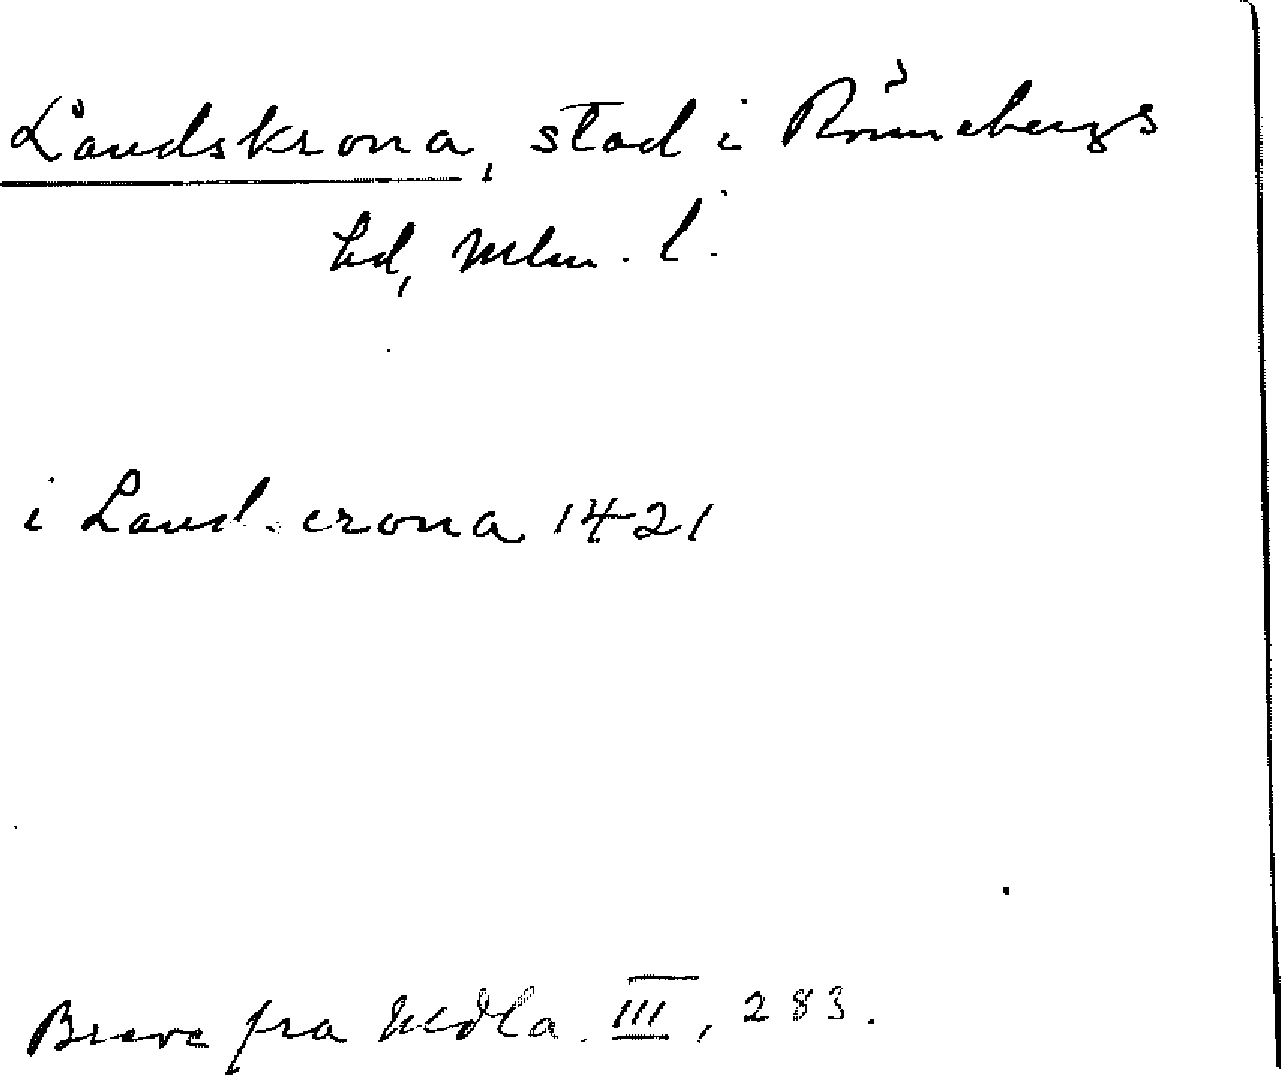 Landskrona, stad i Rönnebergs
hd, Mlm. l.
i Land.crona 1421
Breve fra Mdla. III, 283.